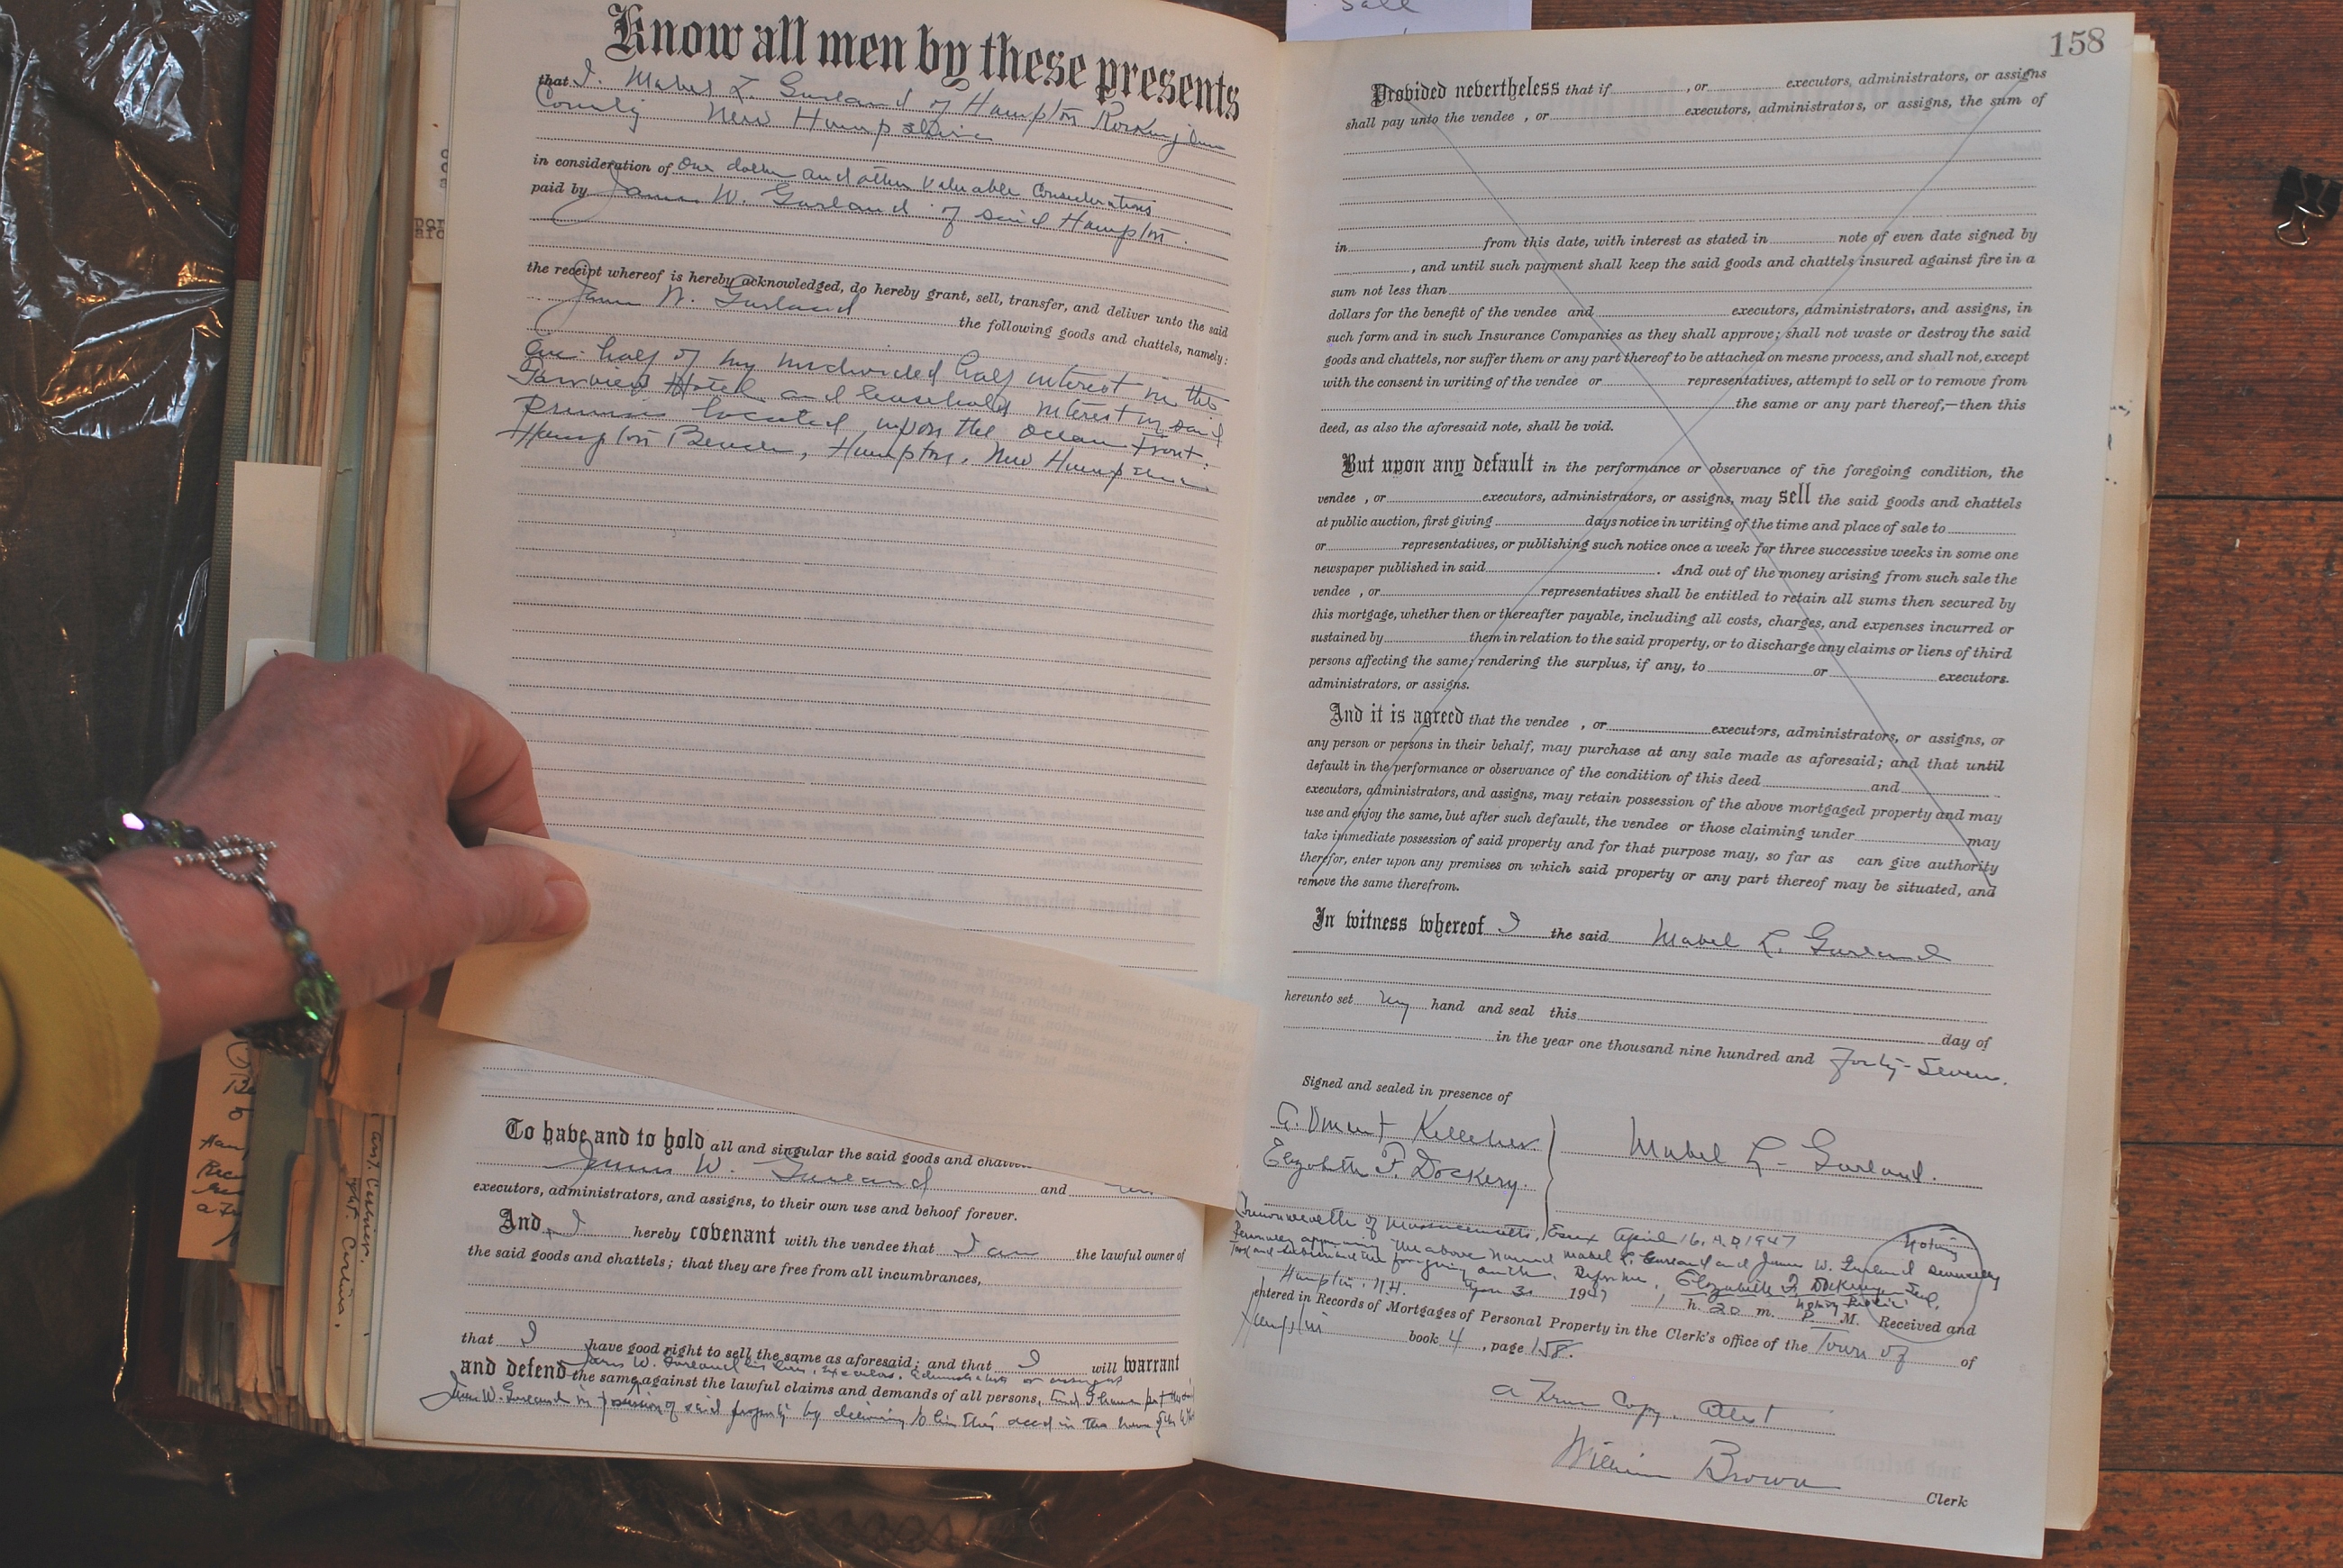 Sale
Know all men by these presents
that I. Mabel L. Garland of Hampton Rockingham
County New Hampshire
in consideration of One dollar and other valuable Considerations
paid by James W. Garland of said Hampton.
the receipt whereof is hereby acknowledged, do hereby grant, sell, transfer, and deliver unto the said
James W. Garland the following goods and chattels, namely:
One half of my undivided half interest in the
Fairview Hotel and leasehold interest in said
Premises located upon the ocean front.
Hampton Beach, Hampton, New Hampshire
To have and to hold all and singular the said goods and
James W. Garland and
executors, administrators, and assigns, to their own use and behoof forever.
And I hereby covenant with the vendee that I am the lawful owner of
the said goods and chattels; that they are free from all incumbrances,
that I have good right to sell the same as aforesaid; and that I will warrant
James W. Garland his heirs, Executors, Administrators or assigns
and defend the same against the lawful claims and demands of all persons, and I have put the said
James W. Garland in possession of said property by delivering to him this deed in the
158
Provided nevertheless that if , or executors, administrators, or assigns
shall pay unto the vendee , or executors, administrators, or assigns, the sum of
in from this date, with interest as stated in note of even date signed by
, and until such payment shall keep the said goods and chattels insured against fire in a
sum not less than
dollars for the benefit of the vendee and executors, administrators, and assigns, in
such form and in such Insurance Companies as they shall approve; shall not waste or destroy the said
goods and chattels, nor suffer them or any part thereof to be attached on mesne process, and shall not, except
with the consent in writing of the vendee or representatives, attempt to sell or to remove from
the same or any part thereof,—then this
deed, as also the aforesaid note, shall be void.
But upon any default in the performance or observance of the foregoing condition, the
vendee , or executors, administrators, or assigns, may sell the said goods and chattels
at public auction, first giving days notice in writing of the time and place of sale to
or representatives, or publishing such notice once a week for three successive weeks in some one
newspaper published in said . And out of the money arising from such sale the
vendee , or representatives shall be entitled to retain all sums then secured by
this mortgage, whether then or thereafter payable, including all costs, charges, and expenses incurred or
sustained by them in relation to the said property, or to discharge any claims or liens of third
persons affecting the same; rendering the surplus, if any, to or executors.
administrators, or assigns.
And it is agreed that the vendee , or executors, administrators, or assigns, or
any person or persons in their behalf, may purchase at any sale made as aforesaid; and that until
default in the performance or observance of the condition of this deed and
executors, administrators, and assigns, may retain possession of the above mortgaged property and may
use and enjoy the same, but after such default, the vendee or those claiming under may
take immediate possession of said property and for that purpose may, so far as can give authority
therefor, enter upon any premises on which said property or any part thereof may be situated, and
remove the same therefrom.
In witness whereof I the said Mabel L. Garland
hereunto set my hand and seal this
day of
in the year one thousand nine hundred and Forty-Seven.
Signed and sealed in presence of
Kelleher
Elizabeth F. Dockery.
Mabel L. Garland.
Commonwealth of Massachusetts, Essex April 16, A.D. 1947
Personally appearing the above named Mabel L. Garland and James W. Garland severally
and subscribed the foregoing oath. Before me, Elizabeth F. Dockery Seal,
Notary Public
Notary
Hampton, N.H. 1947 , h. 20 m. P M. Received and
entered in Records of Mortgages of Personal Property in the Clerk's office of the Town of of
Hampton book 4 , page 158.
A True Copy. Attest
William Brown
Clerk